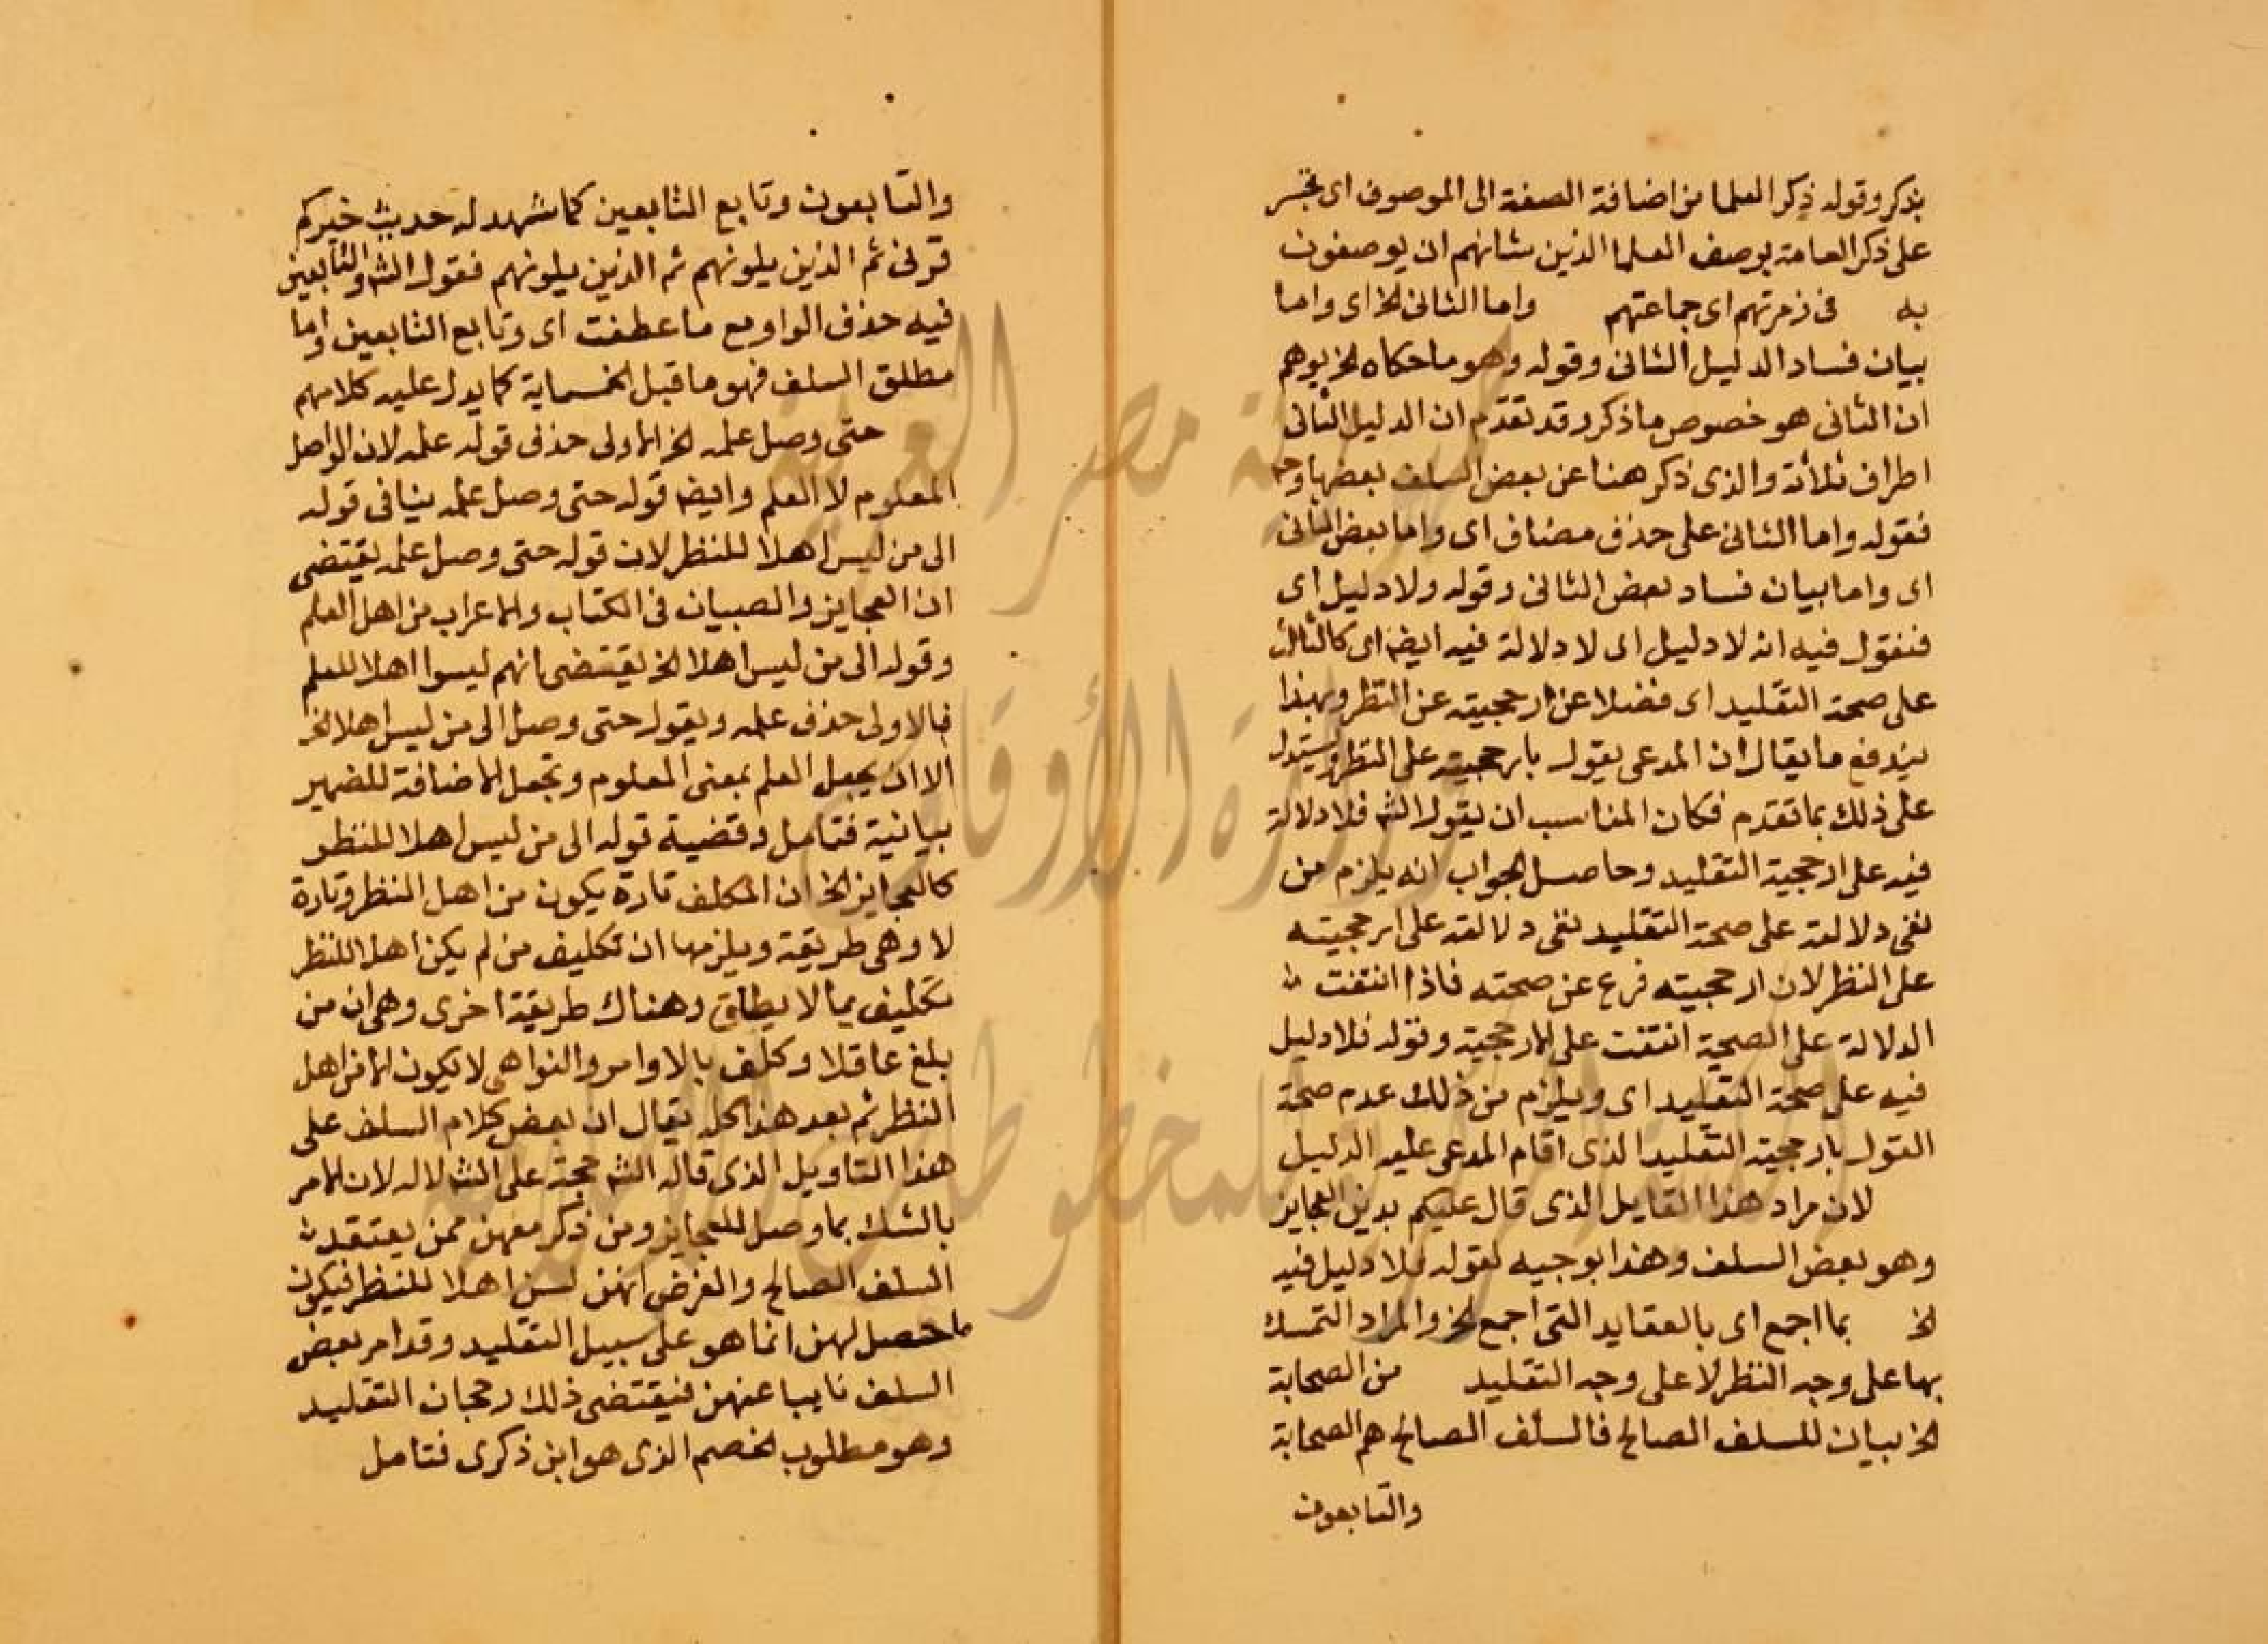 بذكر وقوله ذكر العلما من اضافة الصفة الى الموصوف اى تجسر
على ذكر العامة بوصف العلما الذين شانهم ان يوصفون
به فى زمرتهم اى جماعتهم واما الثانى الخ اى واما
بيان فساد الدليل الثانى وقوله وهو ما حكاه الخ يوهم
ان الثانى هو خصوص ما ذكر وقد تقدم ان الدليل الثانى
اطراف ثلاثة والذى ذكر هنا عن بعض السلف بعضها وح
فقوله واما الثانى على حذف مضاف اى واما بعض الثانى
اى واما بيان فساد بعض الثانى وقوله ولا دليل اى
فنقول فيه انه لا دليل اى لا دلالة فيه ايضا اى كالثالث
على صحة التقليد اى فضلا عن ارجحيته عن النظر وبهذا
يندفع ما يقال ان المدعى يقول بارجحيته على النظر ويستدل
على ذلك بما تقدم فكان المناسب ان يقول الشه فلا دلالة
فيه على ارجحية التقليد وحاصل الجواب انه يلزم من
نفى دلالته على صحة التقليد نفى دلالته على ارجحيته
على النظر لان ارجحيته فرع عن صحته فاذا انتفت
الدلالة على الصحة انتفت على الارجحية وقوله فلا دليل
فيه على صحة التقليد اى ويلزم من ذلك عدم صحة
القول بارجحية التقليد الذى اقام المدعى عليه الدليل
لان مراد هذا القايل الذى قال عليكم بدين العجايز
وهو بعض السلف وهذا توجيه لقوله فلا دليل فيه
الخ بما اجمع اى بالعقايد التى اجمع الخ والمراد التمسك
بها على وجه النظر لا على وجه التقليد من الصحابة
الخ بيان للسلف الصالح فالسلف الصالح هم الصحابة
والتابعون
والتابعون وتابع التابعين كما شهد له حديث خيركم
قرنى ثم الذين يلونهم ثم الذين يلونهم فقول الشه والتابعين
فيه حذف الواو مع ما عطفت اى وتابع التابعين واما
مطلق السلف فهو ما قبل الخمسماية كما يدل عليه كلامهم
حتى وصل علمه الخ الاولى حذف قوله علمه لان الواصل
المعلوم لا العلم وايضا قوله حتى وصل علمه ينافى قوله
الى من ليس اهلا للنظر لان قوله حتى وصل علمه يقتضى
ان العجايز والصبيان فى الكتاب والاعراب من اهل العلم
وقوله الى من ليس اهلا الخ يقتضى انهم ليسوا اهلا للعلم
فالاولى حذف علمه ويقول حتى وصل الى من ليس اهلا الخ
الا ان يجعل العلم بمعنى المعلوم وتجعل الاضافة للضمير
بيانية فتامل وقضية قوله الى من ليس اهلا للنظر
كالعجايز الخ ان المكلف تارة يكون من اهل النظر وتارة
لا وهى طريقة ويلزمها ان تكليف من لم يكن اهلا للنظر
تكليف بما لا يطاق وهناك طريقة اخرى وهى ان من
بلغ عاقلا وكلف بالاوامر والنواهى لا يكون الا من اهل
النظر ثم بعد هذا كله يقال ان بعض كلام السلف على
هذا التاويل الذى قاله الشه حجة على الشه لا له لان الامر
بالتمسك بما وصل للعجايز ومن ذكر معهن ممن يعتقد
السلف الصالح والفرض انهن لسن اهلا للنظر فيكون
ما حصل لهن انما هو على سبيل التقليد وقد امر بعض
السلف نايبا عنهن فيقتضى ذلك رجحان التقليد
وهو مطلوب الخصم الذى هو ابن ذكرى فتامل